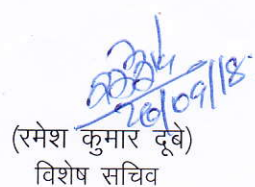 20/09/18
(रमेश कुमार दूबे)
विशेष सचिव